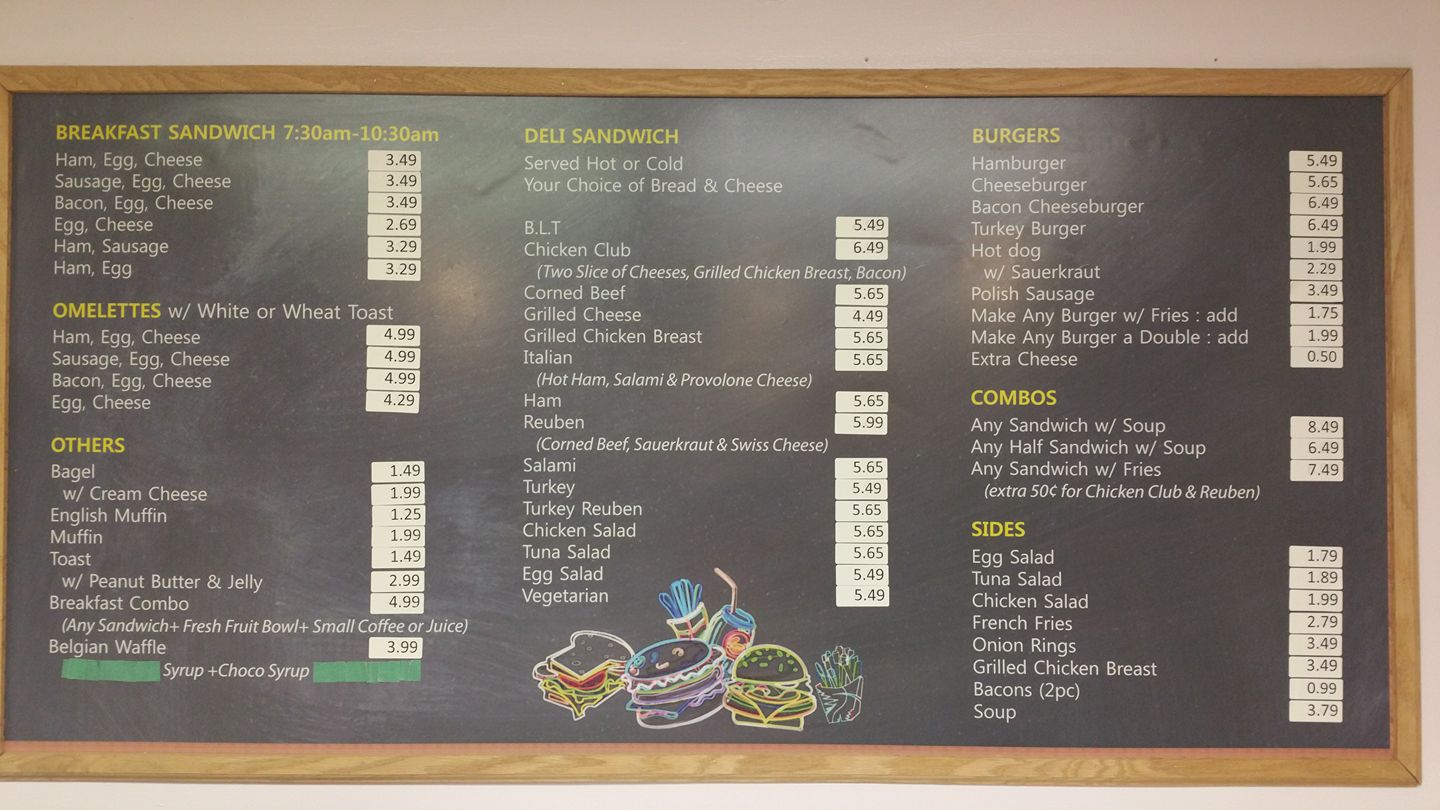 BREAKFAST SANDWICH 7:30am-10:30am
Ham, Egg, Cheese 3.49
Sausage, Egg, Cheese 3.49
Bacon, Egg, Cheese 3.49
Egg, Cheese 2.69
Ham, Sausage 3.29
Ham, Egg 3.29
OMELETTES w/ White or Wheat Toast
Ham, Egg, Cheese 4.99
Sausage, Egg, Cheese 4.99
Bacon, Egg, Cheese 4.99
Egg, Cheese 4.29
OTHERS
Bagel 1.49
w/ Cream Cheese 1.99
English Muffin 1.25
Muffin 1.99
Toast 1.49
w/ Peanut Butter & Jelly 2.99
Breakfast Combo 4.99
(Any Sandwich+ Fresh Fruit Bowl+ Small Coffee or Juice)
Belgian Waffle 3.99
Syrup +Choco Syrup
DELI SANDWICH
Served Hot or Cold
Your Choice of Bread & Cheese
B.L.T 5.49
Chicken Club 6.49
(Two Slice of Cheeses, Grilled Chicken Breast, Bacon)
Corned Beef 5.65
Grilled Cheese 4.49
Grilled Chicken Breast 5.65
Italian 5.65
(Hot Ham, Salami & Provolone Cheese)
Ham 5.65
Reuben 5.99
(Corned Beef, Sauerkraut & Swiss Cheese)
Salami 5.65
Turkey 5.49
Turkey Reuben 5.65
Chicken Salad 5.65
Tuna Salad 5.65
Egg Salad 5.49
Vegetarian 5.49
BURGERS
Hamburger 5.49
Cheeseburger 5.65
Bacon Cheeseburger 6.49
Turkey Burger 6.49
Hot dog 1.99
w/ Sauerkraut 2.29
Polish Sausage 3.49
Make Any Burger w/ Fries : add 1.75
Make Any Burger a Double : add 1.99
Extra Cheese 0.50
COMBOS
Any Sandwich w/ Soup 8.49
Any Half Sandwich w/ Soup 6.49
Any Sandwich w/ Fries 7.49
(extra 50¢ for Chicken Club & Reuben)
SIDES
Egg Salad 1.79
Tuna Salad 1.89
Chicken Salad 1.99
French Fries 2.79
Onion Rings 3.49
Grilled Chicken Breast 3.49
Bacons (2pc) 0.99
Soup 3.79